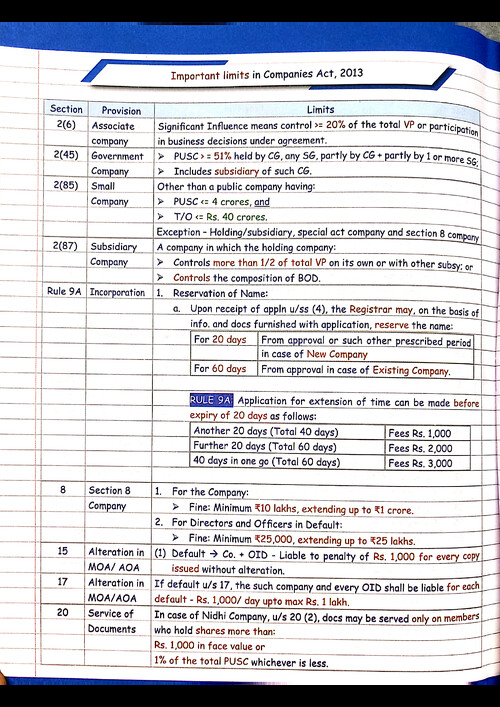 Important limits in Companies Act, 2013
Section Provision Limits
2(6) Associate company Significant Influence means control >= 20% of the total VP or participation
in business decisions under agreement.
2(45) Government Company ➢ PUSC >= 51% held by CG, any SG, partly by CG + partly by 1 or more SG;
➢ Includes subsidiary of such CG.
2(85) Small Company Other than a public company having:
➢ PUSC <= 4 crores, and
➢ T/O <= Rs. 40 crores.
Exception - Holding/subsidiary, special act company and section 8 company
2(87) Subsidiary Company A company in which the holding company:
➢ Controls more than 1/2 of total VP on its own or with other subsy; or
➢ Controls the composition of BOD.
Rule 9A Incorporation 1. Reservation of Name:
a. Upon receipt of appln u/ss (4), the Registrar may, on the basis of
info. and docs furnished with application, reserve the name:
For 20 days From approval or such other prescribed period
in case of New Company
For 60 days From approval in case of Existing Company.
RULE 9A: Application for extension of time can be made before
expiry of 20 days as follows:
Another 20 days (Total 40 days) Fees Rs. 1,000
Further 20 days (Total 60 days) Fees Rs. 2,000
40 days in one go (Total 60 days) Fees Rs. 3,000
8 Section 8 Company 1. For the Company:
➢ Fine: Minimum ₹10 lakhs, extending up to ₹1 crore.
2. For Directors and Officers in Default:
➢ Fine: Minimum ₹25,000, extending up to ₹25 lakhs.
15 Alteration in MOA/ AOA (1) Default → Co. + OID - Liable to penalty of Rs. 1,000 for every copy
issued without alteration.
17 Alteration in MOA/AOA If default u/s 17, the such company and every OID shall be liable for each
default - Rs. 1,000/ day upto max Rs. 1 lakh.
20 Service of Documents In case of Nidhi Company, u/s 20 (2), docs may be served only on members
who hold shares more than:
Rs. 1,000 in face value or
1% of the total PUSC whichever is less.